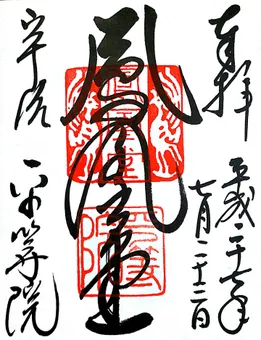 奉拝
平成二十七年
七月二十二日
鳳凰堂
平等院